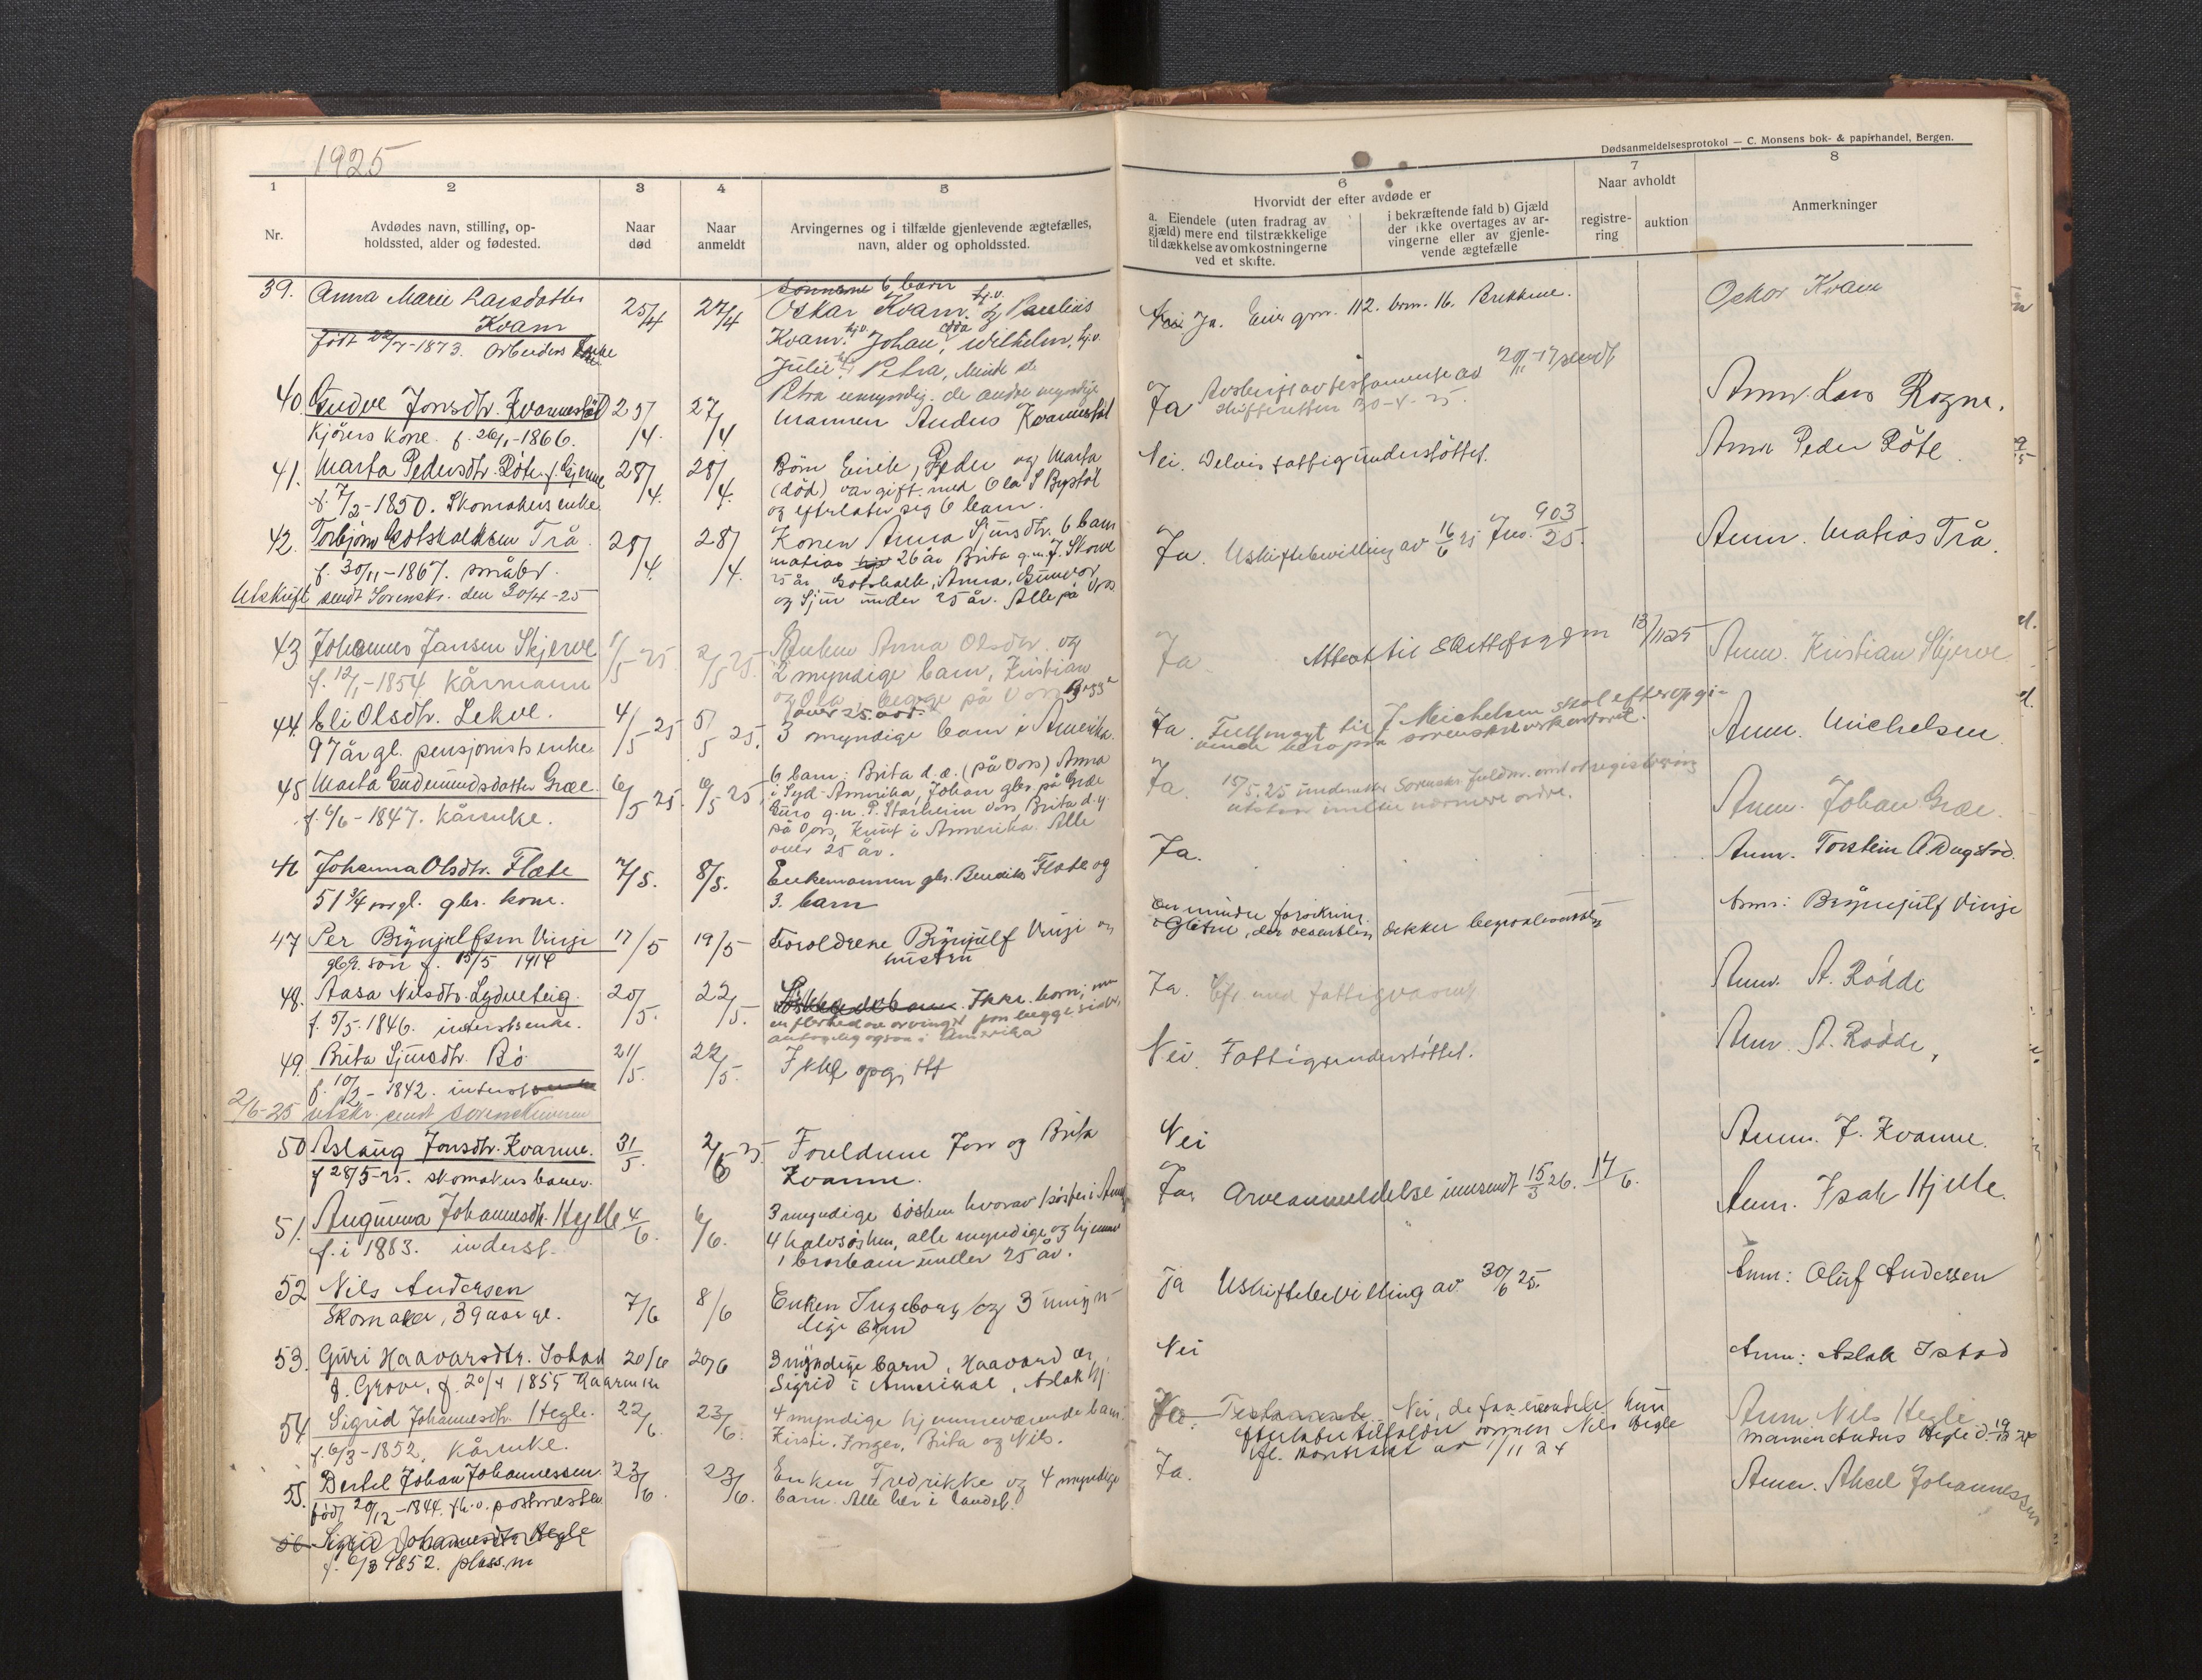 1925
Dødsanmeldelsesprotokol — C. Monsens bok- & papirhandel, Bergen.
1
Nr.
2
Avdødes navn, stilling, op-
holdssted, alder og fødested.
3
Naar
død
4
Naar
anmeldt
5
Arvingernes og i tilfælde gjenlevende ægtefælles,
navn, alder og opholdssted.
6
Hvorvidt der efter avdøde er
a. Eiendele (uten fradrag av
gjæld) mere end tilstrækkelige
til dækkelse av omkostningerne
ved et skifte.
i bekræftende fald b) Gjæld
der ikke overtages av ar-
vingerne eller av gjenle-
vende ægtefælle
7
Naar avholdt
registre-
ring
auktion
8
Anmerkninger
39. Anna Marie Larsdatter
Kvam
født 22/7-1873. Arbeiders
25/4
27/4
Sønnene 6 barn
Oskar Kvam. hj.v. og Paulius
Kvam. hj.v. Johan, Wilhelm, hj.v.
Julie, Petra,
Petra umyndig. de andre myndige
Ja. Eier gnr. 112. brn. 16. Brekkene.
Oskar Kvam
40. Gudve Jonsdtr. Kvarmestøl
Kjørers kone. f. 26/1-1866.
25/4.
27/4
Mannen Anders Kvarmestøl
Ja Avskrift av testamente av 20/11-17 sendt
skifteretten 30-4-25.
Anm. Lars Rogne.
41. Marta Pedersdtr. Røte f. Gjerme
f. 7/2-1850. Skomakers enke.
28/4.
28/4.
Børn Eirik, Peder og Marta
(død) var gift med Ola S Bystøl
og efterlater seg 6 barn.
Nei. Delvis fattigunderstøttet.
Anm Peder Röte
42. Torbjørn Gotskalksen Trå
f. 30/11-1867. småbr.
Utskrift sendt Sorenskr. den 30/4-25
28/4.
28/4.
Konen Anna Sjursdtr. 6 barn
Matias 26 år, Brita g.m. J. Skorve
25 år, Gotskalk, Anna, Gunvor
og Sjur under 25 år. Alle på Voss
Ja. Uskiftebevilling av 16/6 25 Jno. 903/25.
Anm. Matias Trå.
43 Johannes Jansen Skjerve
f. 12/1-1854 kårmann
1/5 25.
2/5 25.
Enken Anna Olsdtr. og
2 myndige barn, Kristian
og Ola, begge på Voss Begge
over 25 aar.
Ja. Attest til 13/11 25
Anm. Kristian Skjerve.
44. Eli Olsdtr. Lekve.
97 år gl. pensjonistsenke
4/5 25
5/5 25.
3 myndige barn i Amerika.
Ja. Fullmagt til J Michelsen skal efter opgi-
ende bero paa sorenskriverkontoret.
Anm. Michelsen
45 Marta Gudmundsdatter Græe.
f. 6/6-1847. kårenke.
6/5 25.
6/5 25,
6 barn: Brita d.e. (på Voss) Anna
i Syd-Amerika, Johan gbr. på Græe
Guro g.m. P. Starheim Voss, Brita d.y.
på Voss, Knut i Amerika. Alle
over 25 år.
Ja. 15/5.25
utstaa inntil nærmere ordre.
Anm. Johan Græe.
46 Johanna Olsdtr. Flæte
51 3/4 aar gl. gbr. kone.
7/5.
8/5.
Enkemannen gbr. Bendik Flæte og
3. barn
Ja.
Anm. Torstein A Dugstad.
47 Per Brynjulfsen Vinje
gbr. søn f. 15/5 1914
17/5
19/5
Foreldrene Brynjulf Vinje og
hustru
En mindre forsikring
i Gjetne, der vesentlig dekker begravelsesutg.
Anm: Brynjulf Vinje
48. Aasa Nilsdtr. Lydveteig.
f. 5/5.1846. inderstsenke.
20/5.
22/5.
Ikke born; men
en flerhed av arvinger paa begge sider,
antagelig ogsaa i Amerika
Ja.
Anm. A. Rødde
49. Brita Sjursdtr. Bø
f. 10/2-1842. inderst
2/6-25 utskr. sendt sorenskriveren
21/5.
22/5.
Ikke opgitt
Nei. Fattigunderstøttet.
Anm. A. Rødde,
50 Aslaug Jonsdtr. Kvarme.
f 28/5-25. skomakers barn.
31/5.
2/6 25.
Foreldrene Jon og Brita
Kvarme.
Nei
Anm. J. Kvarme.
51. Angunna Johannesdtr. Hylle
f. i 1883. inderst.
4/6.
6/6.
3 myndige søsken hvorav 1 søster i Am.
4 halvsøsken, alle myndige og hjemme
1 brorbarn under 25 år.
Ja. Arveanmeldelse innsendt 15/3 26. 17/6.
Anm. Isak Hylle.
52 Nils Andersen
Skomaker, 39 aar gl.
7/6
8/6
Enken Ingeborg og 3 umyn-
dige børn
Ja Uskiftebevilling av 30/6 25.
Anm: Oluf Andersen
53. Guri Haavarsdtr. Istad
f. Grove, f. 20/4 1855 Kaarenke
20/6
20/6
3 myndige barn, Haavard og
Sigrid i Amerikae, Aslak hj.
Nei
Anm: Aslak Istad
54. Sigrid Johannesdtr. Hegle.
f. 6/3-1852, kårenke.
22/6.
23/6.
4 myndige hjemmeværende barn.
Kirsti, Inger, Brita og Nils.
Ja. Testamente. Nei, de faa eiendele hun
efterlater tilfalder sønnen Nils Hegle
ifl. kontrakt av 1/11 24
Anm. Nils Hegle
Mannen Anders Hegle d. 19/10 24
55. Bertel Johan Johannessen.
født 20/12-1844. fh.v. postmester
23/6.
23/6.
Enken Fredrikke og 4 myndige
barn. Alle her i landet.
Ja.
Anm. Aksel Johannessen
56 Sigrid Johannesdtr Hegle
f. 6/3 1852. plass.m